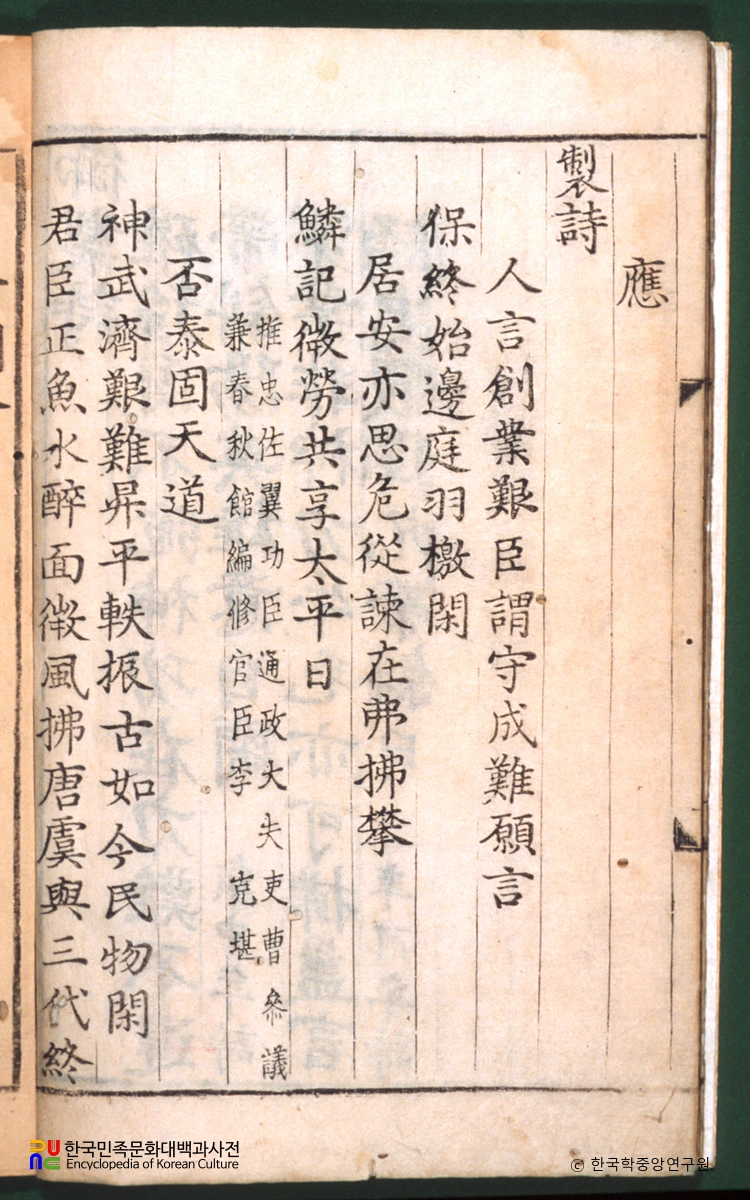 應
製詩
人言創業艱臣謂守成難願言
保終始邊庭羽檄閑
居安亦思危從諫在弗拂攀
鱗記微勞共享太平日
推忠佐翼功臣通政大夫吏曹參議
兼春秋館編修官臣李克堪
否泰固天道
神武濟艱難昇平軼振古如今民物閑
君臣正魚水醉面微風拂唐虞與三代終
한국민족문화대백과사전
Encyclopedia of Korean Culture
© 한국학중앙연구원